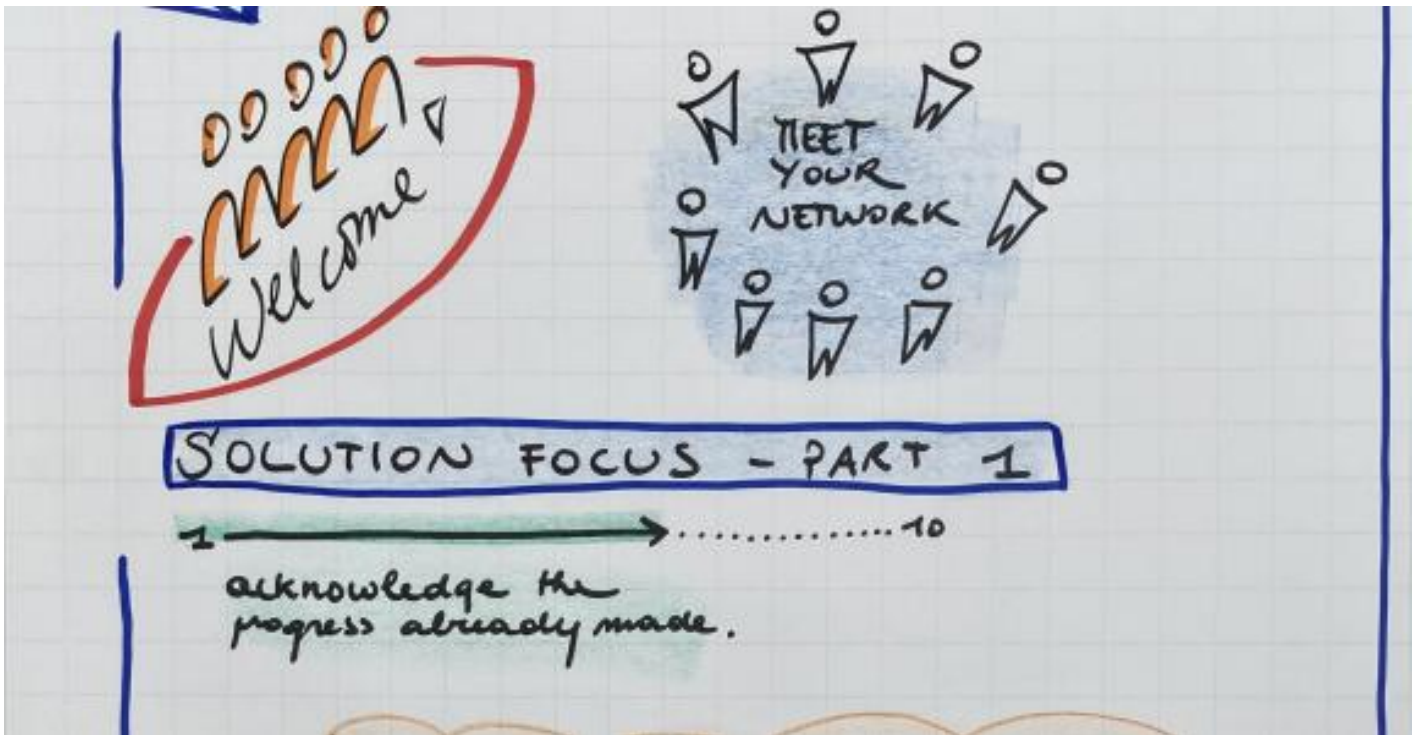 Welcome
MEET
YOUR
NETWORK
SOLUTION FOCUS - PART 1
1 10
acknowledge the
progress already made.